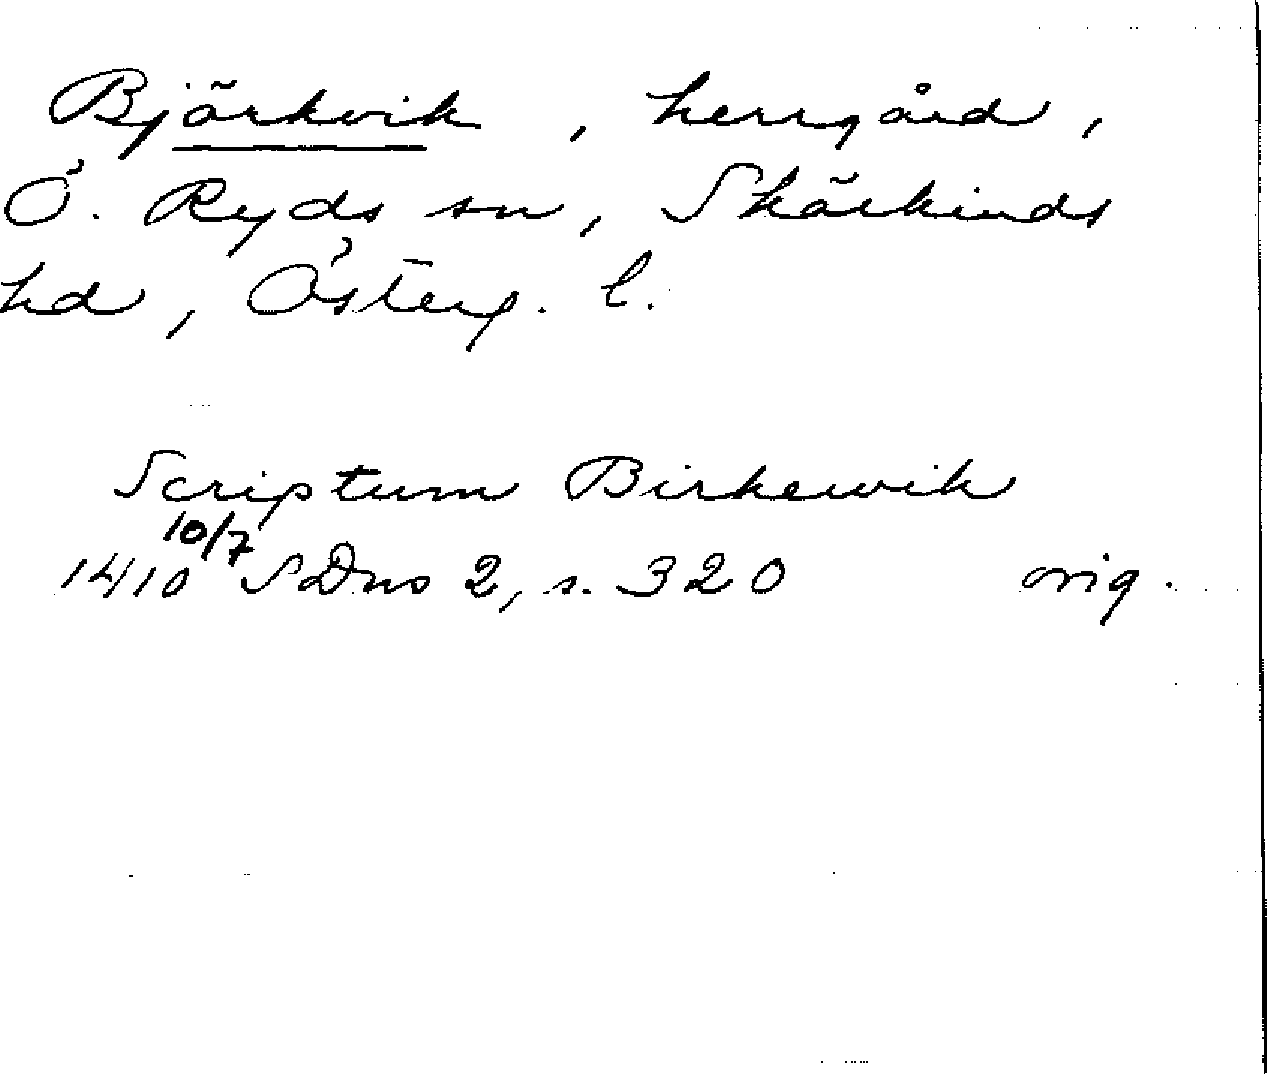 Björkvik, herrgård,
Ö. Ryds sn, Skärkinds
hd, Österg. l.
Scriptum Birkewik
10/7
1410 SDns 2, s. 320 orig.